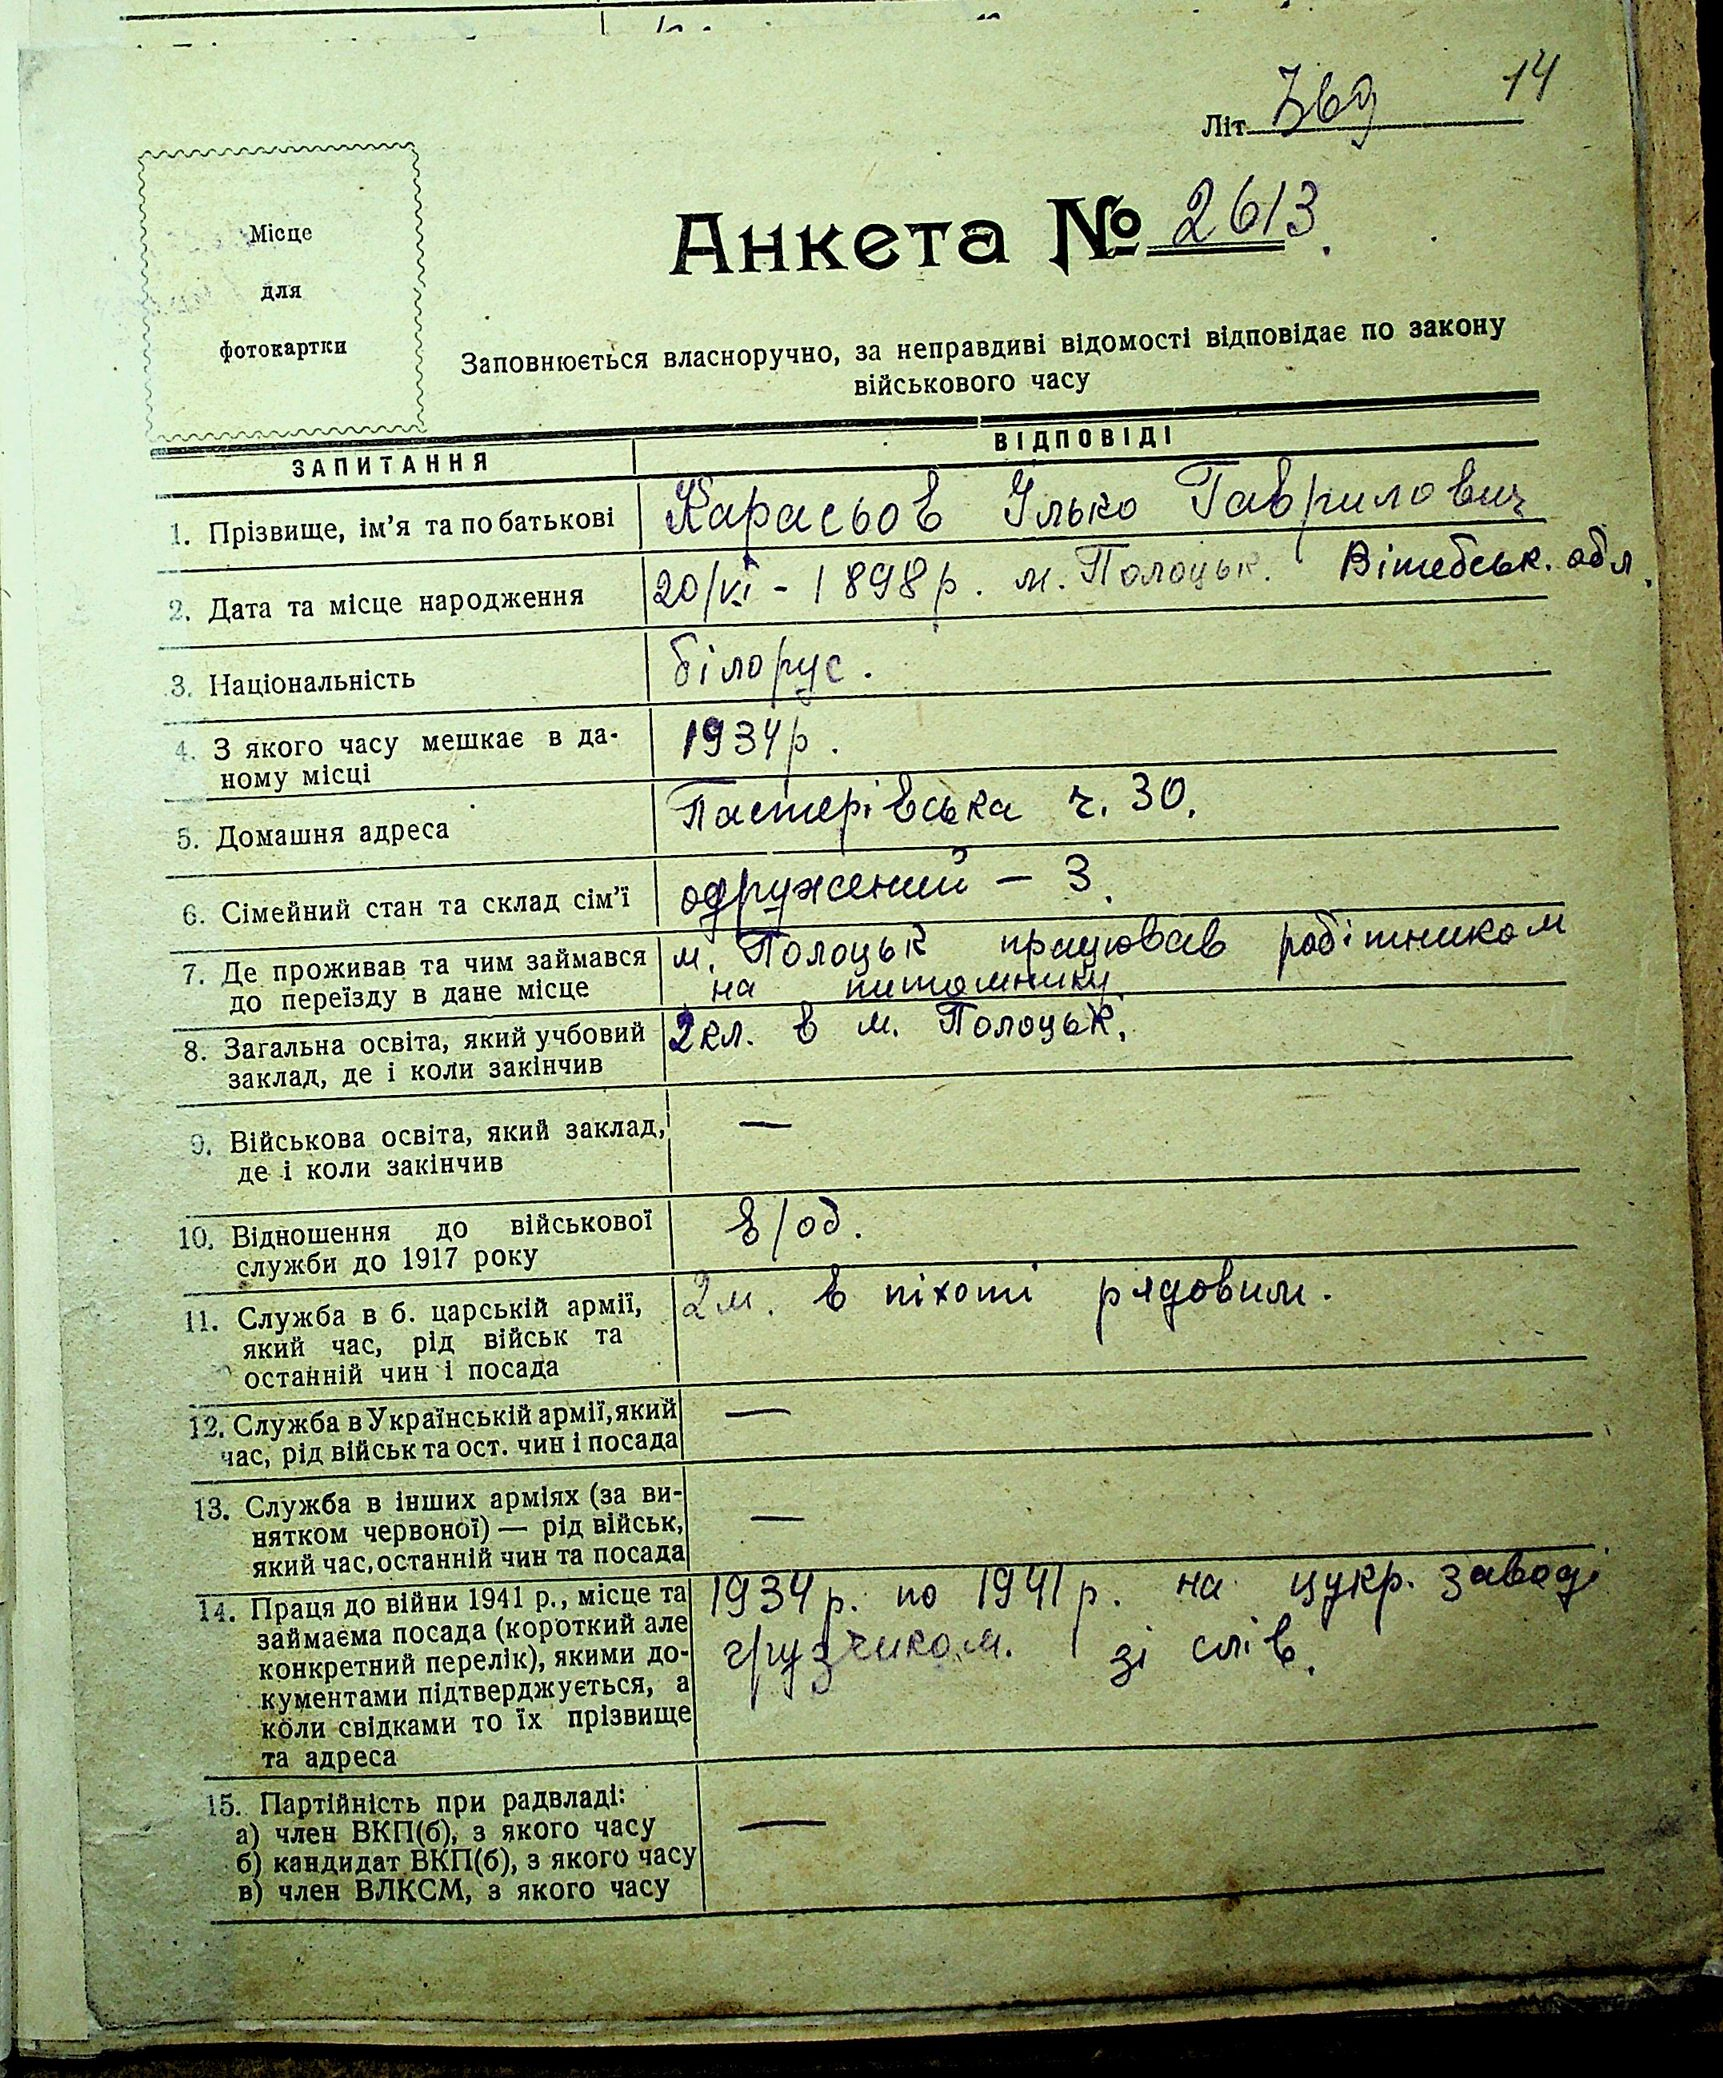 14
Літ. 769
Місце
для
фотокартки
Анкета № 2613.
Заповнюється власноручно, за неправдиві відомості відповідає по закону
військового часу
ЗАПИТАННЯ ВІДПОВІДІ
1. Прізвище, ім'я та по батькові Карасьов Ілько Гаврилович
2. Дата та місце народження 20/VI - 1898 р. м. Полоцьк. Вітебськ. обл.
3. Національність білорус.
4. З якого часу мешкає в да-
ному місці 1934 р.
5. Домашня адреса Пастерівська ч. 30.
6. Сімейний стан та склад сім'ї одружений – 3.
7. Де проживав та чим займався м. Полоцьк працював робітником
до переїзду в дане місце на питомнику
8. Загальна освіта, який учбовий 2 кл. в м. Полоцьк.
заклад, де і коли закінчив
9. Військова освіта, який заклад, —
де і коли закінчив
10. Відношення до військової в/об.
служби до 1917 року
11. Служба в б. царській армії, 2 м. в піхоті рядовим.
який час, рід військ та
останній чин і посада
12. Служба в Українській армії, який —
час, рід військ та ост. чин і посада
13. Служба в інших арміях (за ви-
нятком червоної) — рід військ, —
який час, останній чин та посада
14. Праця до війни 1941 р., місце та 1934 р. по 1941 р. на цукр. заводі
займаєма посада (короткий але грузчиком. зі слів.
конкретний перелік), якими до-
кументами підтверджується, а
коли свідками то їх прізвище
та адреса
15. Партійність при радвладі:
а) член ВКП(б), з якого часу —
б) кандидат ВКП(б), з якого часу
в) член ВЛКСМ, з якого часу